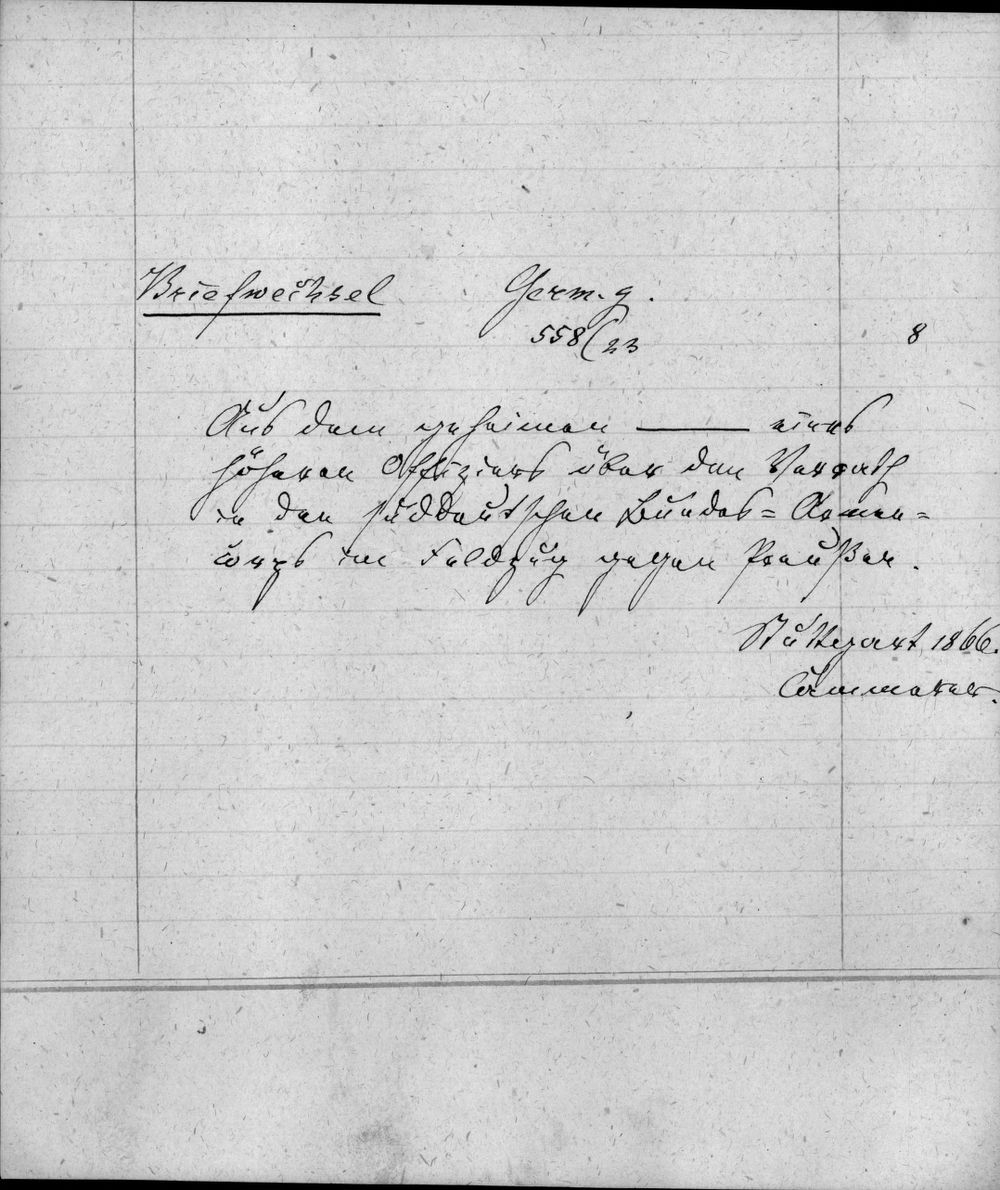 Briefwechsel Germ. g.
558/23 8
Aus dem geheimen ——— eines
höheren Offiziers über den Verrath
in den süddeutschen Bundes=Armee=
corps im Feldzug gegen Preußen.
Stuttgart 1866.
Cammerer.